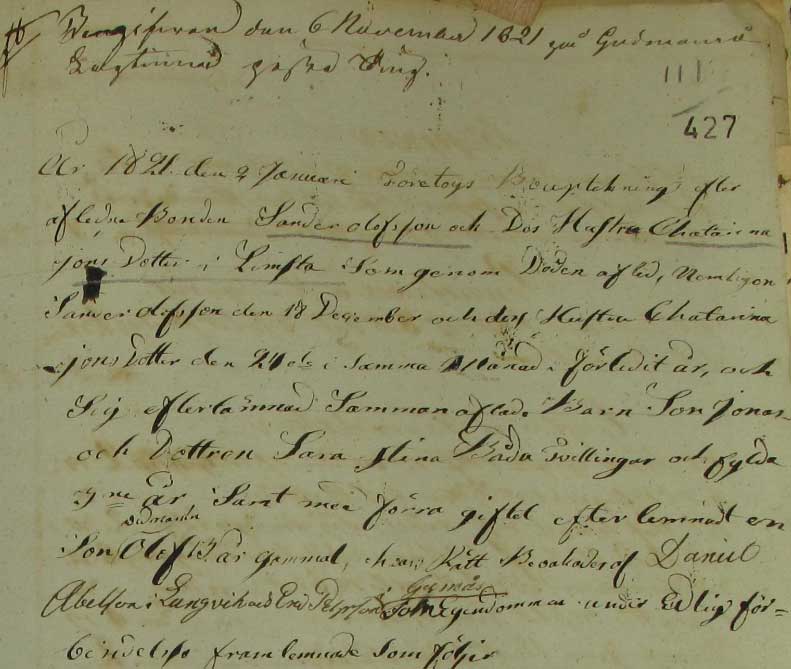 Ingifven den 6 November 1821 på Gudmunrå
Lagtinna Ting.
111
427
År 1821 den 2 Januari Företogs Bouptekning efter
afledne Bonden Sander olofsson och Des Hustru Chatarina
Jons Dotter i Limsta Som genom Döden afled, Nemligen
Sander olofsson den 18 December och des Hustru Chatarina
jons Dotter den 24 ds i samma Månad förledit år, och
Sig efterlämnad Samman aflade Barn Son jonas
och Dottren Sara Stina Båda Tvillingar och fylda
år Samt med förra giftet efterlemnadt en
Son Olof 13 år gammal, hvars Rätt Bevakades af Daniel
Abelsson i Lungvik och Eric Gumås
Som Egendommen under Edlig för-
bindelse framlemnade Som följer